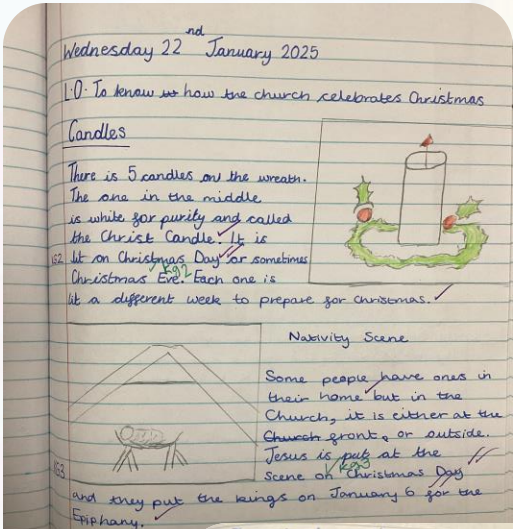 Wednesday 22nd January 2025
L.O. To know how the church celebrates Christmas
Candles
There is 5 candles on the wreath.
The one in the middle
is white for purity and called
the Christ Candle. It is
lit on Christmas Day or sometimes
Christmas Eve. Each one is
lit a different week to prepare for Christmas.
kg2
Nativity Scene
Some people have ones in
their home but in the
Church, it is either at the
Church front, or outside.
Jesus is put at the
scene on Christmas Day
kg3
and they put the kings on January 6 for the
Epiphany.